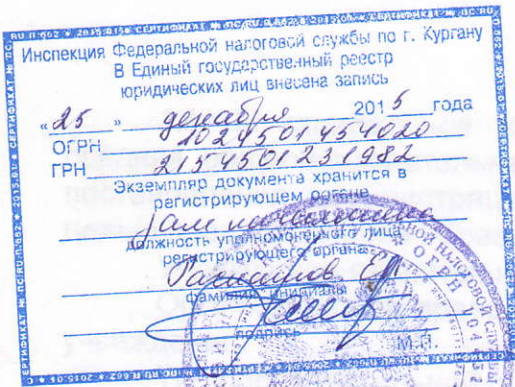 Инспекция Федеральной налоговой службы по г. Кургану
В Единый государственный реестр
юридических лиц внесена запись
«25» декабря 2015 года
ОГРН 1024501454020
ГРН 2154501231982
Экземпляр документа хранится в
регистрирующем органе
Зам. начальника
должность уполномоченного лица
регистрирующего органа
фамилия, инициалы
подпись
М.П.